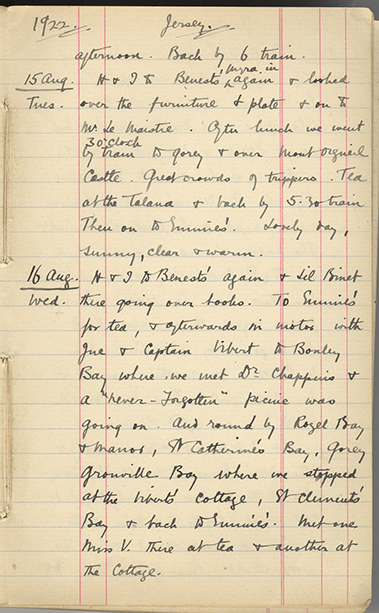 1922. Jersey.
afternoon. Back by 6 train.
15 Aug. H & I to Benests' Myra in again & looked
Tues. over the furniture & plate & on to
Mr Le Maistre. After lunch we went
by 3 o'clock train to Gorey & over Mont Orgueil
Castle. Great crowds of trippers. Tea
at the Talana & back by 5.30 train
Then on to Emmie's. Lovely day,
sunny, clear & warm.
16 Aug. H & I to Benests' again & Lil Binet
Wed. there going over books. To Emmie's
for tea, & afterwards in motor with
Jue & Captain Vibert to Bouley
Bay where we met Dr Chappuis &
a "never-forgotten" picnic was
going on. And round by Rozel Bay
& Manor, St Catherine's Bay, Gorey
Grouville Bay where we stopped
at the Viberts' Cottage, St Clement's
Bay & back to Emmie's. Met one
Miss V. there at tea & another at
the Cottage.